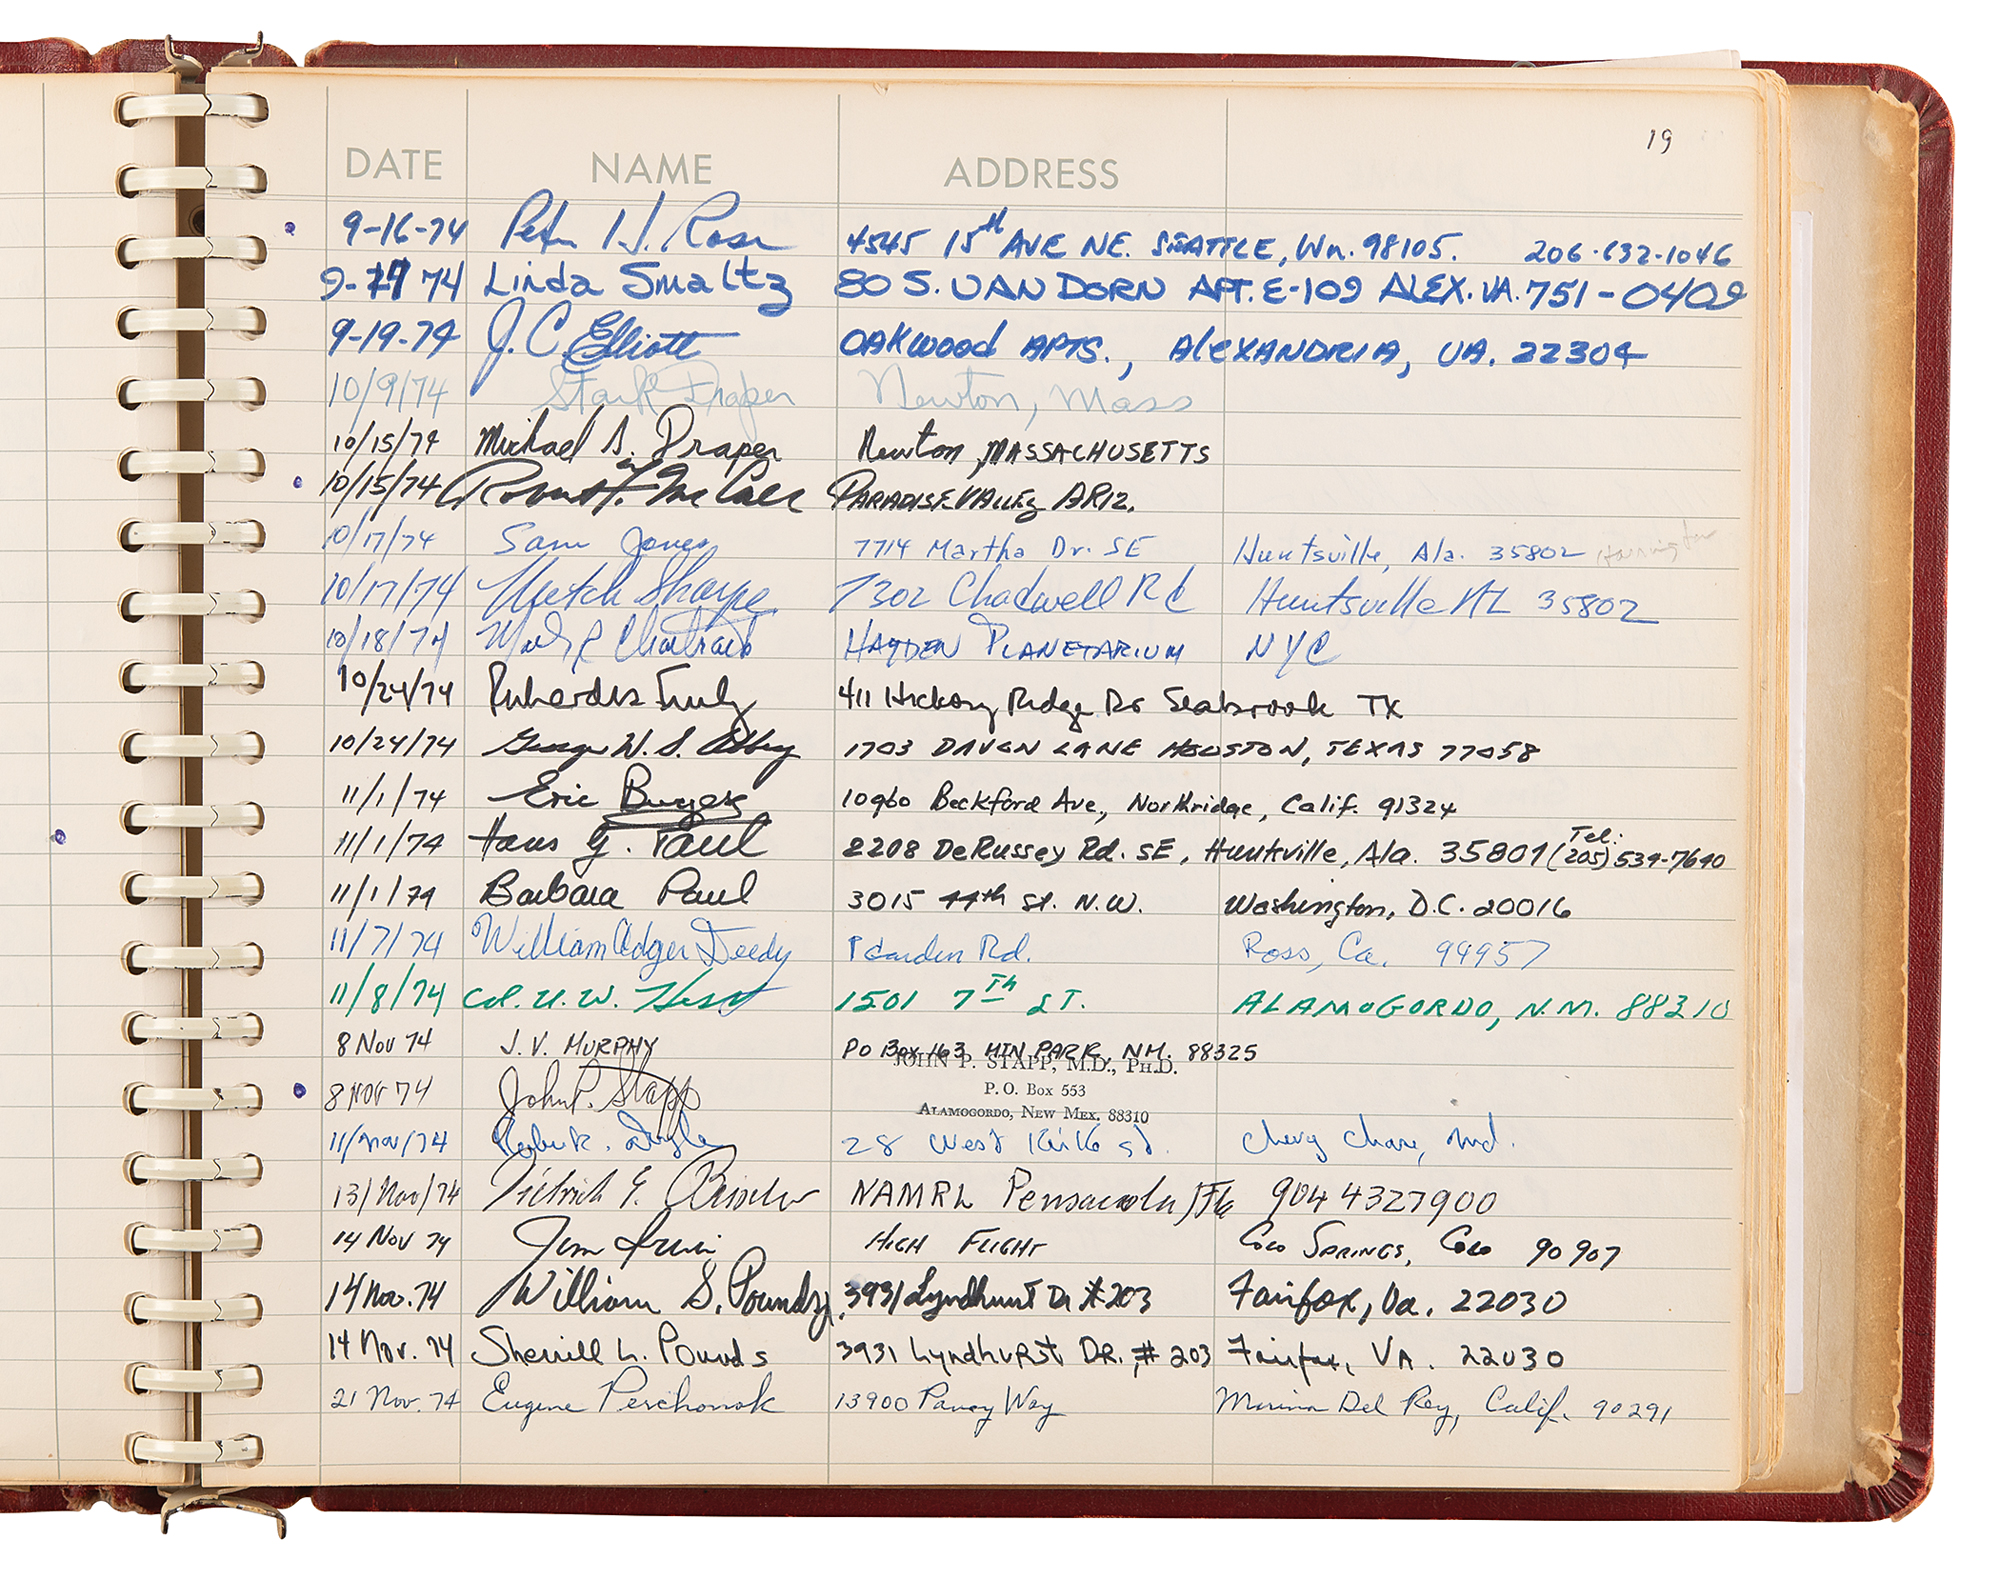 19
DATE NAME ADDRESS
9-16-74 Peter W. Rose 4545 15th AVE NE. SEATTLE, Wn. 98105. 206-632-1046
9- 74 Linda Smaltz 80 S. VAN DORN APT. E-109 ALEX. VA. 751-0409
9-19-74 J.C. Elliott OAKWOOD APTS., ALEXANDRIA, VA. 22304
10/9/74 Stark Draper Newton, Mass
10/15/74 Michael S. Draper Newton, MASSACHUSETTS
10/15/74 Robert T. McCall PARADISE VALLEY ARIZ.
10/17/74 Sam Jones 7714 Martha Dr. SE Huntsville, Ala. 35802 Harrington
10/17/74 Mitch Sharpe 7302 Chadwell Rd Huntsville AL 35802
10/18/74 Mark R Chartrand HAYDEN PLANETARIUM NYC
10/24/74 Richard Truly 411 Hickory Ridge Dr Seabrook TX
10/24/74 George W. S. Abbey 1703 DAVON LANE HOUSTON, TEXAS 77058
11/1/74 Eric Burgess 10960 Beckford Ave, Northridge, Calif. 91324
11/1/74 Hans G. Paul 2208 DeRussey Rd. SE, Huntsville, Ala. 35801 (Tel: 205) 539-7640
11/1/74 Barbara Paul 3015 44th St. N.W. Washington, D.C. 20016
11/7/74 William Adger Deedy Rd. Ross, Ca. 94957
11/8/74 Col. U.W. 1501 7Th ST. ALAMOGORDO, N.M. 88310
8 Nov 74 J.V. MURPHY PO Box 163 MTN PARK, NM. 88325
8 NOV 74 John P. Stapp JOHN P. STAPP, M.D., PH.D.
P.O. Box 553
ALAMOGORDO, NEW MEX. 88310
11/Nov/74 28 West Kirke St. Chevy Chase, Md.
13/Nov/74 Dietrich E. Beischer NAMRL Pensacola, Fla 904 4327900
14 Nov 74 Jim Irwin HIGH FLIGHT Colo SPRINGS, Colo 90907
14 Nov. 74 William S. Pounds, 3931 Lyndhurst Dr #203 Fairfax, Va. 22030
14 Nov. 74 Sherrill L. Pounds 3931 Lyndhurst DR. # 203 Fairfax, VA. 22030
21 Nov. 74 Eugene Perchonok 13900 Panay Way Marina Del Rey, Calif. 90291